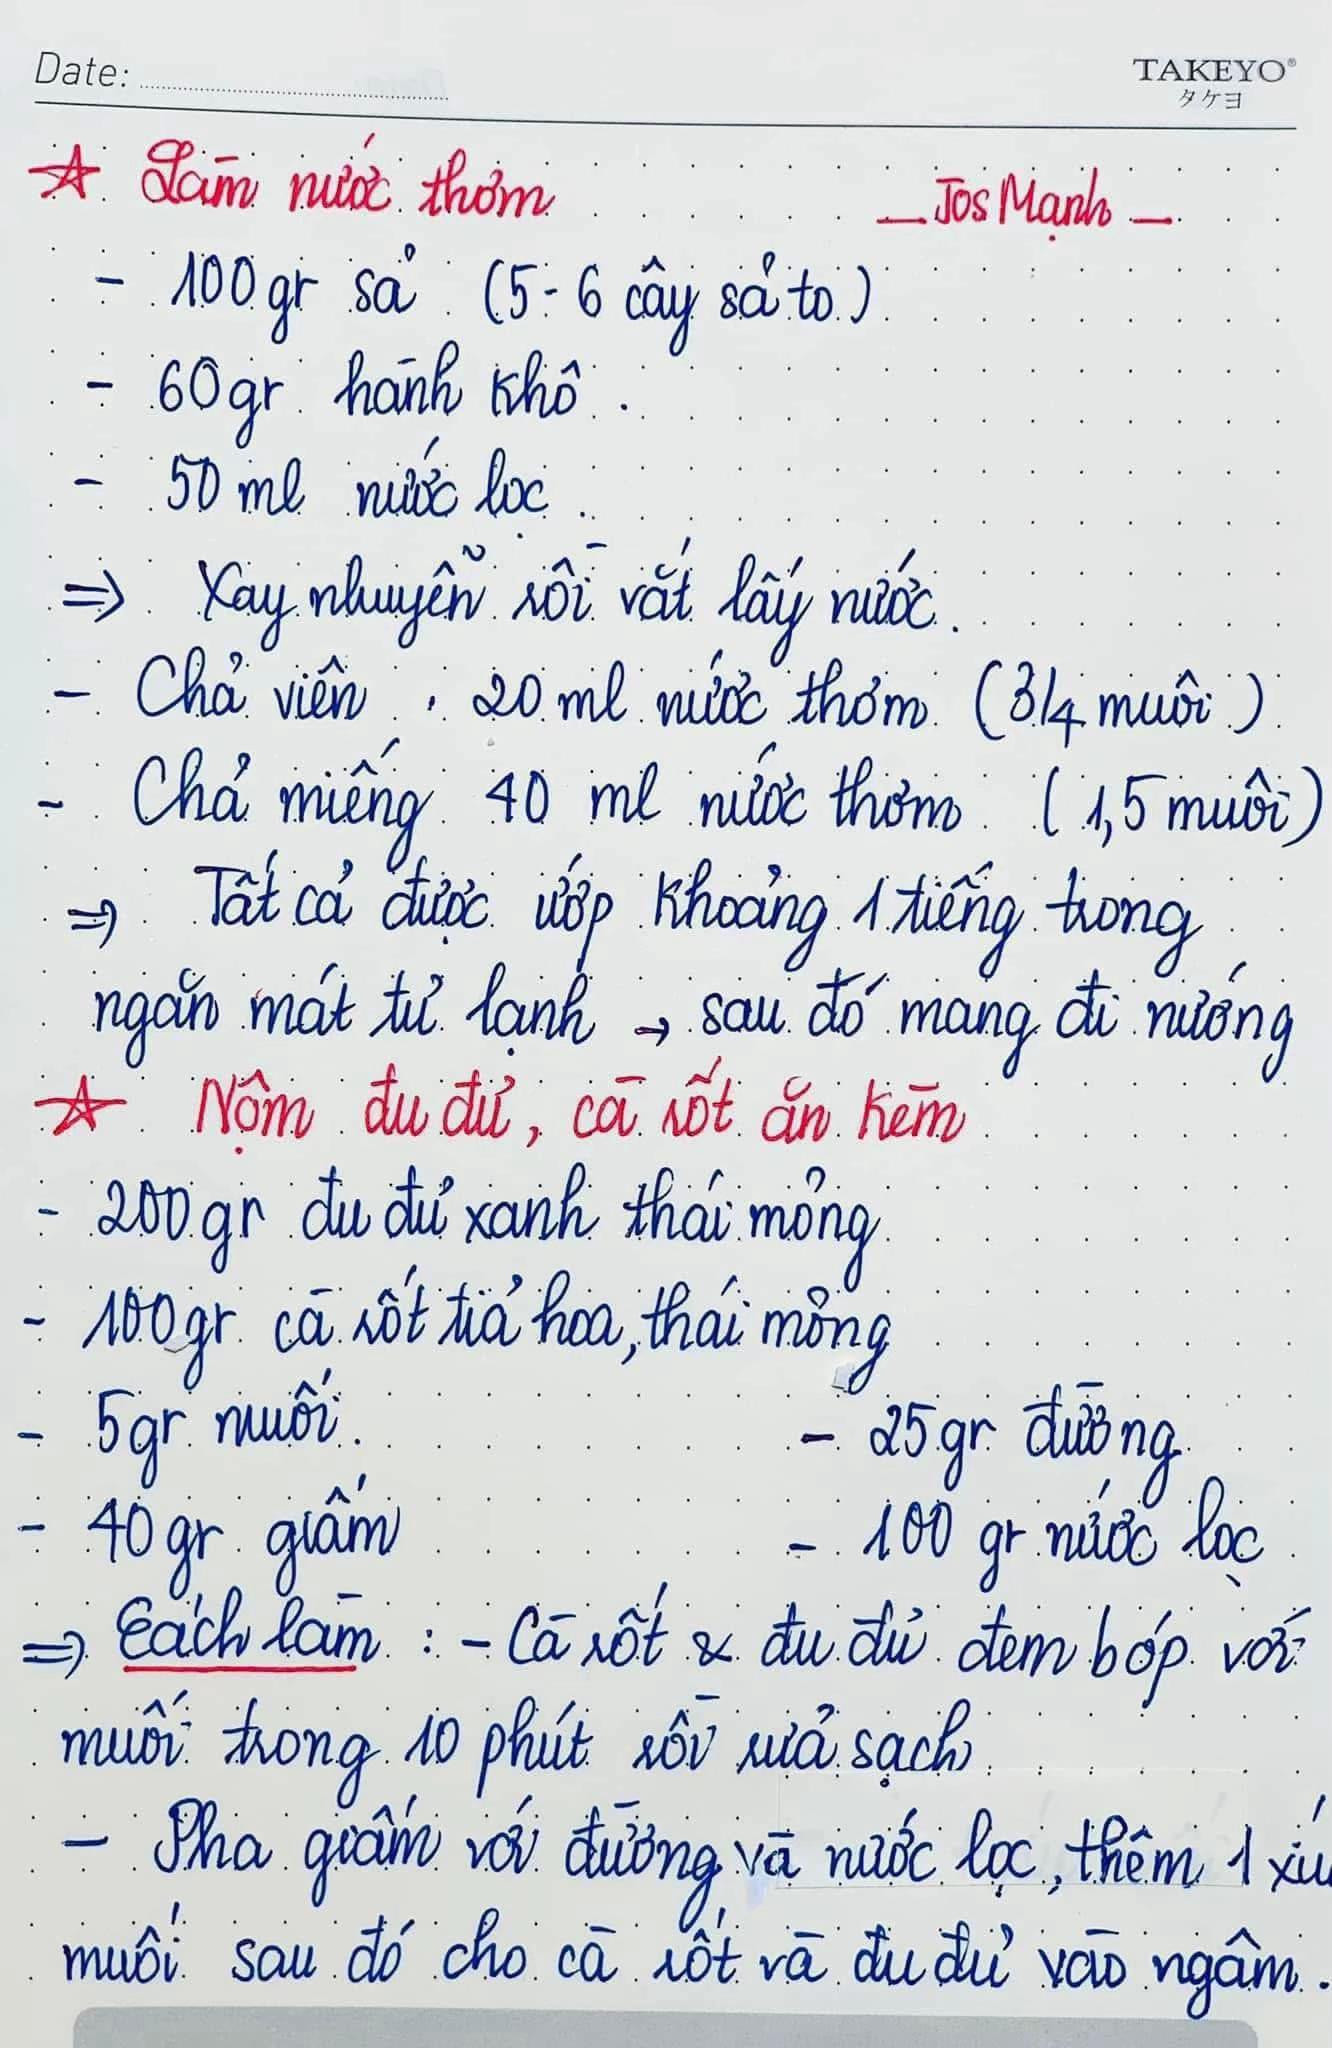 Date:
TAKEYO®
タケヨ
☆ Làm nước thơm
_ Jos Mạnh _
- 100gr sả (5-6 cây sả to)
- 60gr hành khô.
- 50ml nước lọc.
=> Xay nhuyễn rồi vắt lấy nước.
- Chả viên . 20ml nước thơm (3/4 muôi)
- Chả miếng 40 ml nước thơm (1,5 muôi)
=> Tất cả được ướp khoảng 1 tiếng trong
ngăn mát tủ lạnh → sau đó mang đi nướng
☆ Nộm đu đủ, cà rốt ăn kèm
- 200gr đu đủ xanh thái mỏng
- 100gr cà rốt tỉa hoa, thái mỏng
- 5gr muối. - 25gr đường
- 40gr giấm - 100 gr nước lọc
=> Cách làm : - Cà rốt & đu đủ đem bóp với
muối trong 10 phút rồi rửa sạch
- Pha giấm với đường và nước lọc, thêm 1 xíu
muối sau đó cho cà rốt và đu đủ vào ngâm.